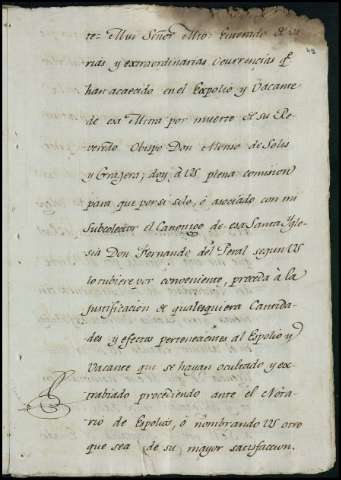 te= Mui Señor Mio: Enterado de va
rias y extraordinarias Ocurrencias q.e
han acaecido en el Expolio y Vacante
de esa Mitra por muerte de su Re
verendo Obispo Don Alonso de Solis
y Grajera; doy à VS plena comision
para que por si solo, ó asociado con mi
Subcolector el Canonigo de esa Santa Ygle
sia Don Fernando del Peral segun VS
lo tubiere por conveniente, proceda à la
justificacion de qualesquiera Cantida
des y efectos pertenecientes al Espolio y
Vacante que se hayan ocultado y ex
trabiado procediendo ante el Nota
rio de Espolios, ó nombrando VS otro
que sea de su mayor satisfaccion.